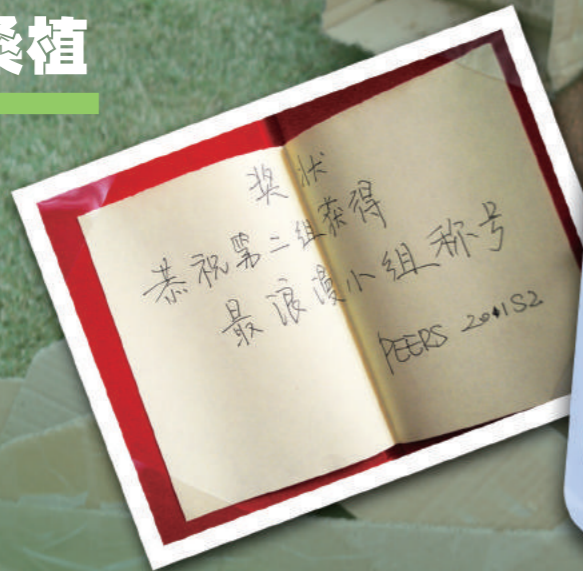 桑植
奖状
恭祝第二组获得
最浪漫小组称号
PEERS 2011S2